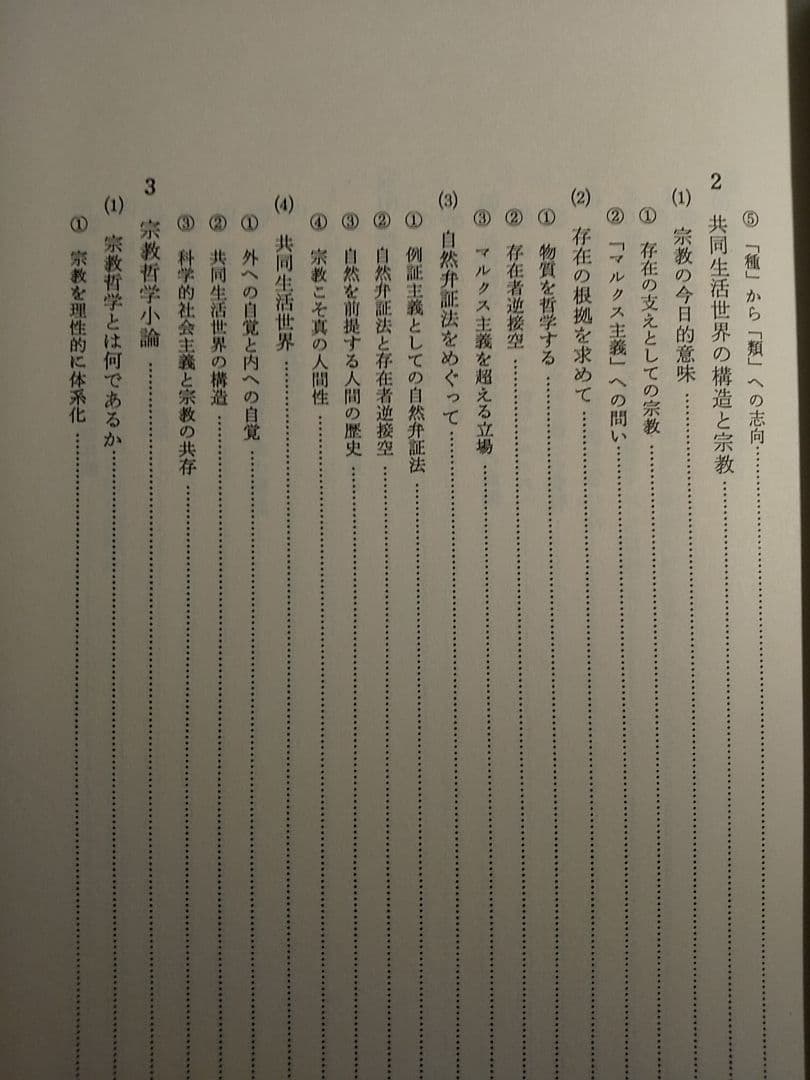 ⑤ 「種」から「類」への志向
2 共同生活世界の構造と宗教
(1) 宗教の今日的意味
① 存在の支えとしての宗教
② 「マルクス主義」への問い
(2) 存在の根拠を求めて
① 物質を哲学する
② 存在者逆接空
③ マルクス主義を超える立場
(3) 自然弁証法をめぐって
① 例証主義としての自然弁証法
② 自然弁証法と存在者逆接空
③ 自然を前提する人間の歴史
④ 宗教こそ真の人間性
(4) 共同生活世界
① 外への自覚と内への自覚
② 共同生活世界の構造
③ 科学的社会主義と宗教の共存
3 宗教哲学小論
(1) 宗教哲学とは何であるか
① 宗教を理性的に体系化